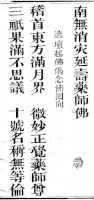 南無消灾延壽藥師佛
遶壇起佛偈念佛回向
稽首東方滿月界　微妙正覺藥師尊
三祇果滿不思議　十號名稱無等倫